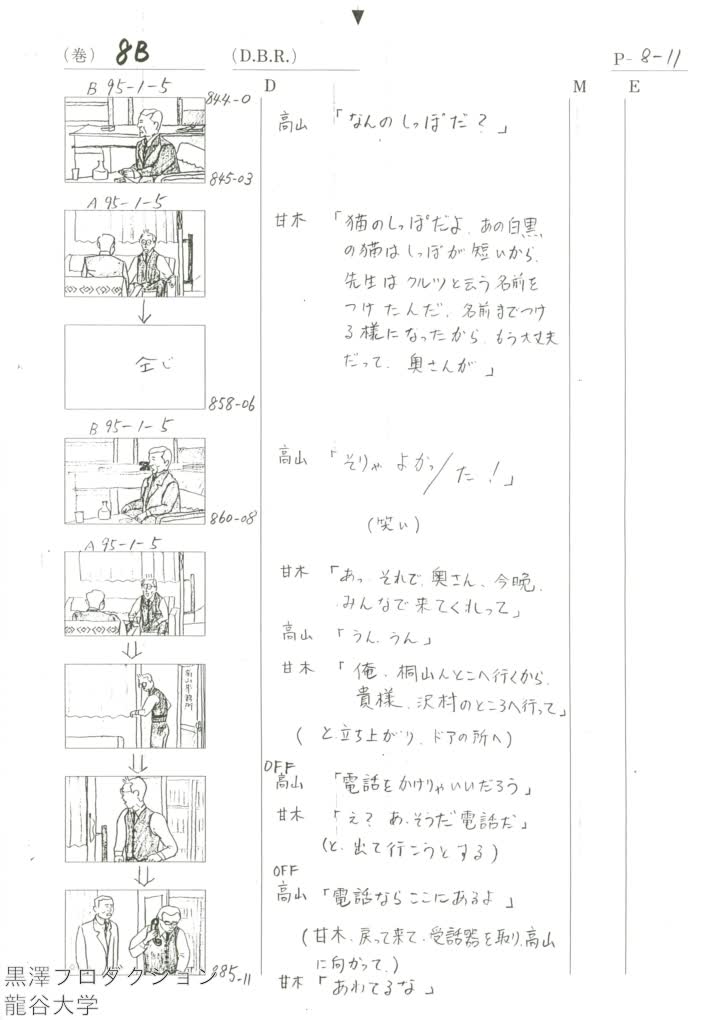 (巻) 8B (D.B.R.) P- 8-11
D M E
B 95-1-5
844-0
高山 「なんのしっぽだ？」
845-03
A 95-1-5
甘木 「猫のしっぽだよ、あの白黒
の猫はしっぽが短いから、
先生はクルツと云う名前を
つけたんだ、名前までつけ
る様になったから、もう大丈夫
だって、奥さんが」
全じ
858-06
B 95-1-5
高山 「そりゃ よかっ/た！」
860-08
(笑い)
A 95-1-5
甘木 「あっ それで、奥さん、今晩、
みんなで来てくれって」
高山 「うん、うん」
甘木 「俺、桐山んとこへ行くから、
貴様、沢村のところへ行って」
高山事務所
(と、立ち上がり、ドアの所へ)
OFF
高山 「電話をかけりゃいいだろう」
甘木 「え？ あ、そうだ電話だ」
(と、出て行こうとする)
OFF
高山 「電話ならここにあるよ」
(甘木、戻って来て、受話器を取り、高山
に向かって、)
甘木 「あわてるな」
885-11
黒澤プロダクション
龍谷大学